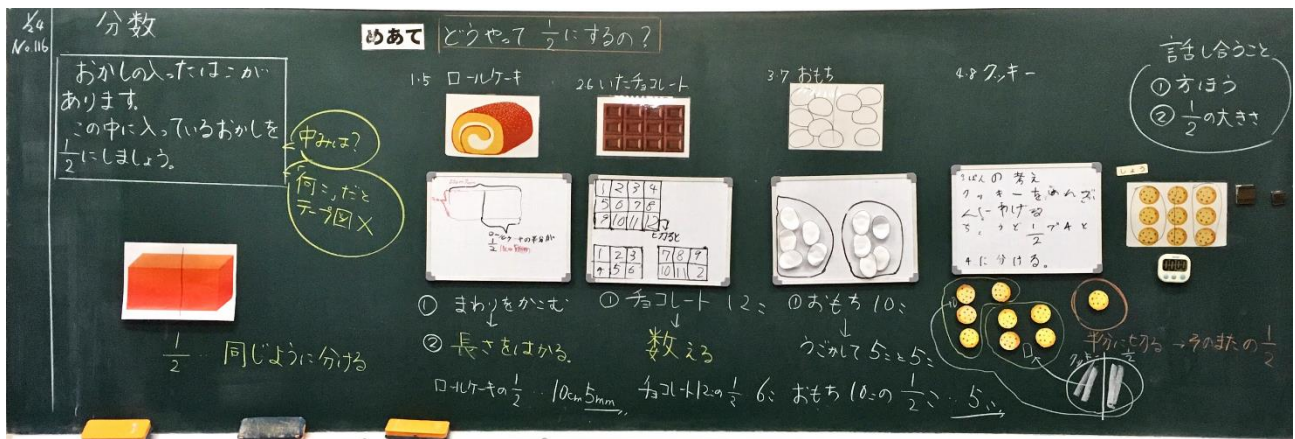 1/24
No.116
分数
おかしの入ったはこが
あります。
この中に入っているおかしを
1/2にしましょう。
中みは?
「何こ」だと
テープ図×
1/2…同じように分ける
めあて
どうやって 1/2にするの?
1.5 ロールケーキ
① まわりをかこむ
↓
② 長さをはかる。
ロールケーキの1/2…10cm5mm
2.6 いたチョコレート
1 2 3 4
5 6 7 8
9 10 11 12
1 2 3
4 5 6
7 8 9
10 11 2
① チョコレート 12こ
↓
数える
チョコレート12この1/2 6こ
3.7 おもち
① おもち10こ
↓
うごかして5こと5こ
おもち10この1/2…5こ
4.8 クッキー
考え
4に分ける。
半分に切る→そのまたの1/2
1/2
話し合うこと
① 方ほう
② 1/2の大きさ